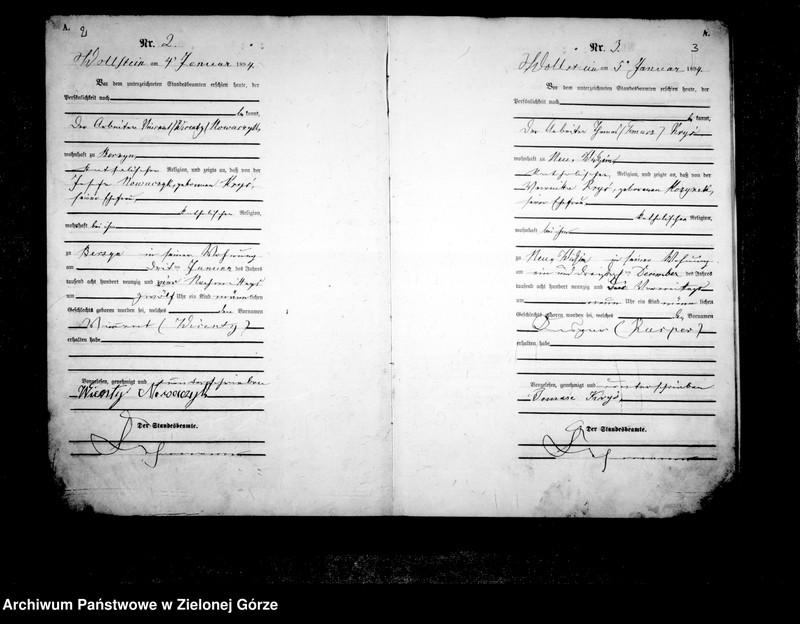 A. 2
Nr. 2.
Wollstein am 4ten Januar 1894.
Vor dem unterzeichneten Standesbeamten erschien heute, der
Persönlichkeit nach
be kannt,
Der Arbeiter Vincent (Wicenty) Nowaczyk,
wohnhaft zu
katholischer Religion, und zeigte an, daß von der
Josefa Nowaczyk, geborenen Kryś,
seiner Ehefrau,
katholischer Religion,
wohnhaft bei ihm
zu in seiner Wohnung
am dritten Januar des Jahres
tausend acht hundert neunzig und vier Nachmittags
um zwölf Uhr ein Kind männlichen
Geschlechts geboren worden sei, welches den Vornamen
Vincent (Wicenty)
erhalten habe
Vorgelesen, genehmigt und unterschrieben
Wicenty Nowaczyk
Der Standesbeamte.
A.
3
Nr. 3.
Wollstein am 5ten Januar 1894.
Vor dem unterzeichneten Standesbeamten erschien heute, der
Persönlichkeit nach
be kannt,
Der Arbeiter Thomas (Tomasz) Kryś
wohnhaft zu Neu
katholischer Religion, und zeigte an, daß von der
Veronika Kryś, geborenen
seiner Ehefrau
katholischer Religion,
wohnhaft bei ihm
zu Neu in seiner Wohnung
am ein und dreißigsten December des Jahres
tausend acht hundert neunzig und drei Vormittags
um neun Uhr ein Kind männlichen
Geschlechts geboren worden sei, welches den Vornamen
(Kasper)
erhalten habe
Vorgelesen, genehmigt und unterschrieben
Tomasz Kryś
Der Standesbeamte.
Archiwum Państwowe w Zielonej Górze